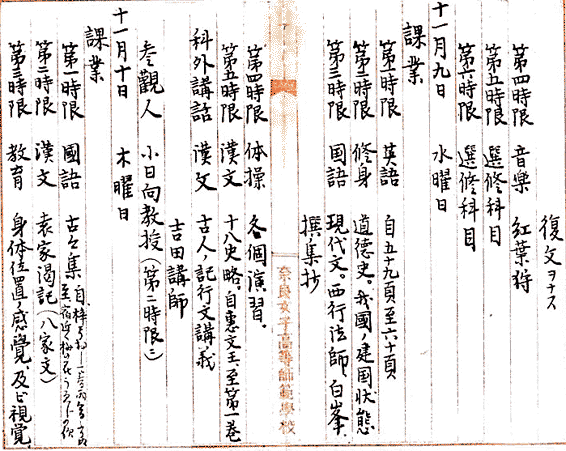 復文ヲナス
第四時限 音樂 紅葉狩
第五時限 選修科目
第六時限 選修科目
十一月九日 水曜日
課業
第一時限 英語 自五十九頁至六十頁
第二時限 修身 道徳史。我國ノ建国状態
第三時限 国語 現代文。西行法師、白峯、
撰集抄
奈良女子高等師範學校
第四時限 体操 各個演習。
第五時限 漢文 十八史略、自惠文王、至第一巻
科外講話 漢文 古人ノ記行文講義
吉田講師
参觀人 小日向教授(第二時限ニ)
十一月十日 木曜日
課業
第一時限 國語 古今集
第二時限 漢文 袁家渇記(八家文)
第三時限 教育 身体位置ノ感覺、及ビ視覺、